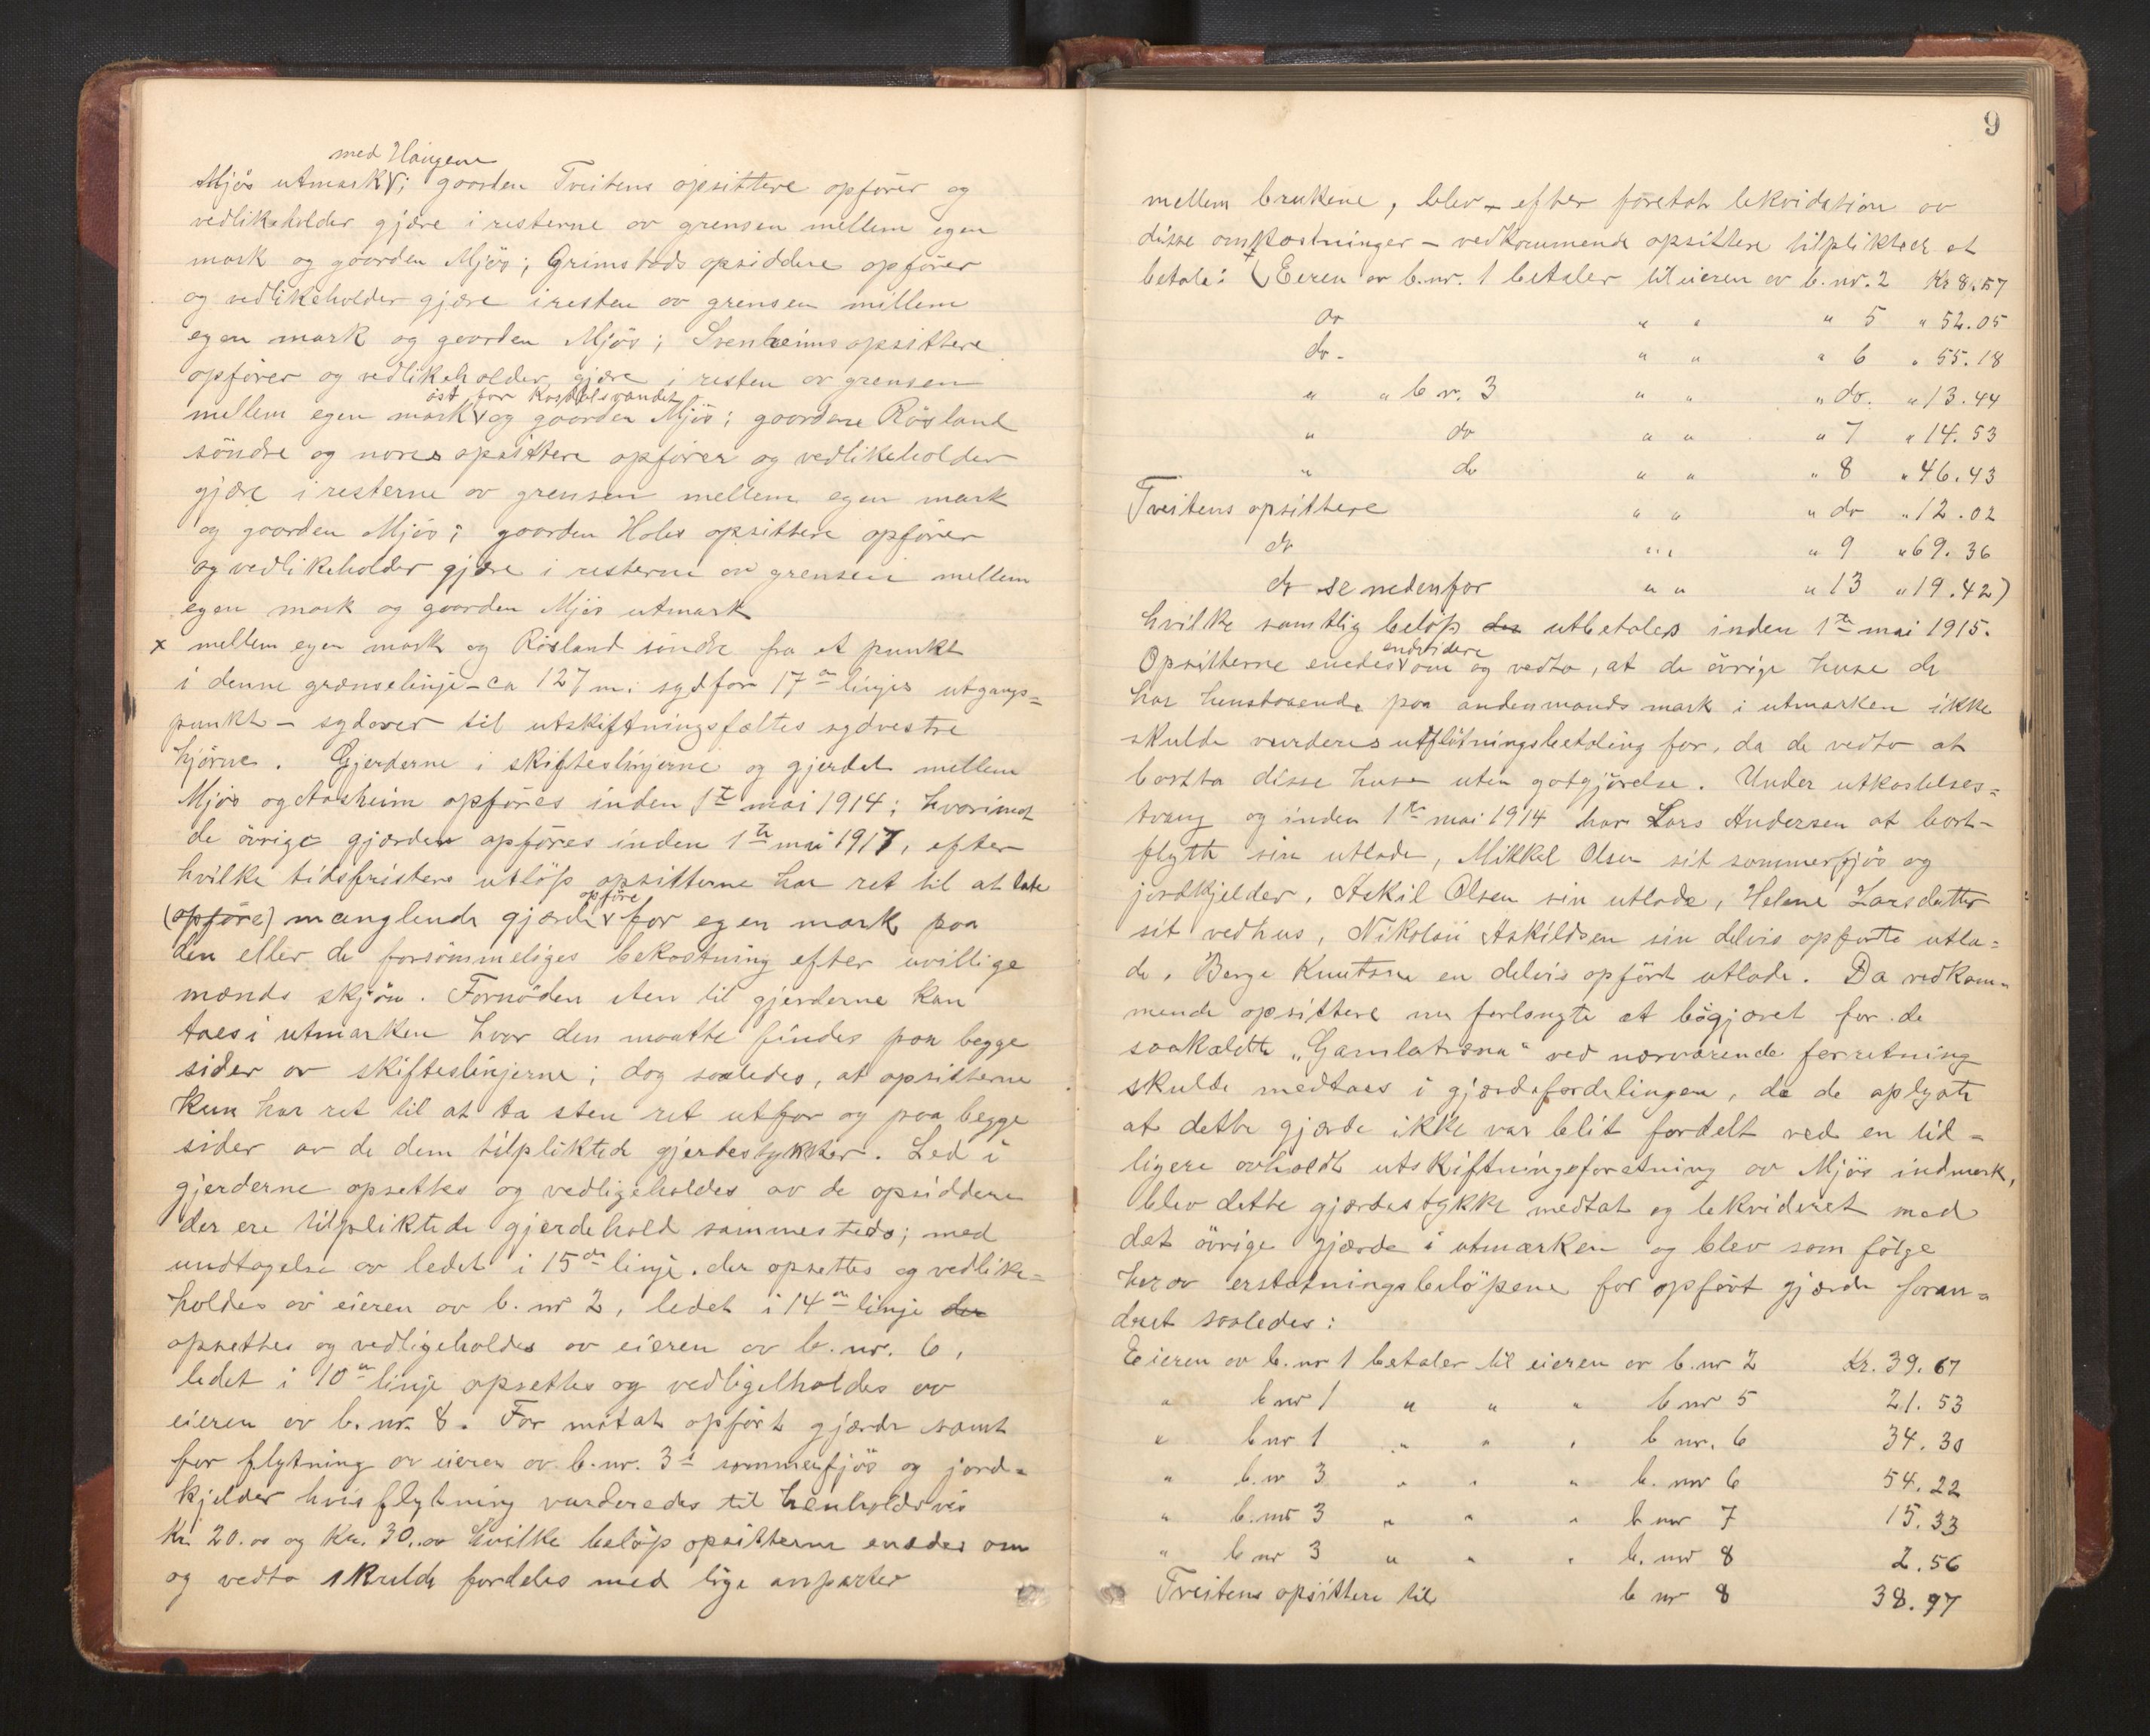 med Haugene
Mjös utmark; gaarden Tveitens opsittere opförer og
vedlikeholder gjære i resterne av grensen mellem egen
mark og gaarden Mjös; Grimstads opsiddere opförer
og vedlikeholder gjære i resten av grensen mellem
egen mark og gaarden Mjös; Svenheims opsittere
opförer og vedlikeholder gjære i resten av grensen
öst for
mellem egen mark og gaarden Mjös; gaardene Rösland
söndre og nores opsittere opförer og vedlikeholder
gjære i resterne av grensen mellem egen mark
og gaarden Mjös; gaarden Holes opsittere opförer
og vedlikeholder gjære i resterne av grensen mellem
egen mark og gaarden Mjös utmark
x mellem egen mark og Rösland söndre fra et punkt
i denne grænselinje – ca 127 m. sydfor 17de linjes utgangs=
punkt – sydover til utskiftningsfeltes sydvestre
hjörne. Gjerderne i skifteslinjerne og gjerdet mellem
Mjös og Aasheim opföres inden 1te mai 1914; hvorimot
de övrige gjærder opföres inden 1te mai 1917, efter
hvilke tidsfristers utlöp opsitterne har ret til at late
opföre
(opföre) manglende gjærde for egen mark paa
den eller de forsömmeliges bekostning efter uvillige
mænds skjön. Fornöden sten til gjerderne kan
taes i utmarken hvor den maatte findes paa begge
sider av skifteslinjerne; dog saaledes, at opsitterne
kun har ret til at ta sten ret utfor og paa begge
sider av de dem tilpliktede gjerdestykker. Led i
gjerderne opsettes og vedligeholdes av de opsiddere
der ere tilpliktede gjerdehold sammesteds; med
undtagelse av ledet i 15de linje, der opsettes og vedlike=
holdes av eieren av b. nr 2, ledet i 14de linje der
opsettes og vedligeholdes av eieren av b. nr. 6,
ledet i 10de linje opsettes og vedligeholdes av
eieren av b. nr. 8. For motat opfört gjærde samt
for flytning av eieren av b. nr. 3s sommerfjös og jord=
kjelder hvis flytning vurderedes til henholdsvis
Kr. 20.00 og Kr. 30.00 hvilke belöp opsitterne enedes om
og vedto skulde fordeles med lige anparter
9
mellem brukene, blev – efter foretat lekvidation av
disse omkostninger – vedkommende opsittere tilpliktet at
betale: (Eeren av b. nr. 1 betaler til eieren av b. nr. 2 Kr 8.57
do " " " 5 " 52.05
do - " " " 6 " 55.18
" " b nr. 3 " " " do. " 13.44
" do " " " 7 " 14.53
" do " " " 8 " 46.43
Tveitens opsittere " " " do " 12.02
do " " " 9 " 69.36
do se nedenfor " " " 13 " 19.42)
hvilke samtlig belöp der utbetales inden 1te mai 1915.
endvidere
Opsitterne enedes om og vedto, at de övrige huse de
har henstaaende paa andenmands mark i utmarken ikke
skulde vurderes utflötningsbetaling for, da de vedto at
bortta disse huse uten gotgjörelse. Under utkastelses=
tvang og inden 1te mai 1914 har Lars Andersen at bort-
flytte sin utlade, Mikkel Olsen sit sommerfjös og
jordkjelder, Askil Olsen sin utlade, Helene Larsdatter
sit vedhus, Nikolai Askildsen sin delvis opförte utla=
de, Berge Knutsen en delvis opfört utlade. Da vedkom=
mende opsittere nu forlangte at bögjæret for de
saakaldte „Gamlatræna" ved nærværende forretning
skulde medtaes i gjærdefordelingen, da de oplyste
at dette gjærde ikke var blit fordelt ved en tid=
ligere avholdt utskiftningsforretning av Mjös indmark,
blev dette gjærdestykke medtat og lekvideret med
det övrige gjærde i utmarken og blev som fölge
herav erstatningsbelöpene for opfört gjærde foran=
dret saaledes:
Eieren av b. nr 1 betaler til eieren av b. nr 2 Kr. 39.67
" b nr 1 " " " b nr 5 21.53
" b nr 1 " " " b nr. 6 34.30
" b. nr 3 " " " b. nr 6 54.22
" b. nr 3 " " " b nr 7 15.33
" b nr 3 " " " b. nr 8 2.56
Tveitens opsittere til b nr 8 38.97